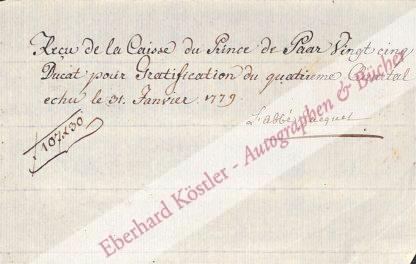 Recu de la Caisse du Prince de Paar Vingt cinq
Ducat pour Gratification du quatrieme Quartal
echu le 31. Janvier 1779.
L'abbé Jacquet
107 x 30
Eberhard Köstler - Autographen & Bücher